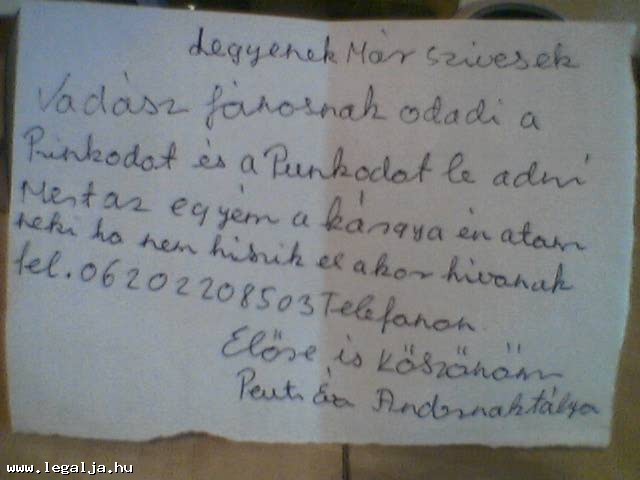 Legyenek Már szivesek
Vadász Jánosnak odadi a
Pinkodot és a Punkodot le adni
Mert az egyém a kárgya én atam
neki ha nem hiszik el akor hivanak
tel. 06202208503 Telefanon
Előse is köszönöm
Éva Andornaktálya
www.legalja.hu